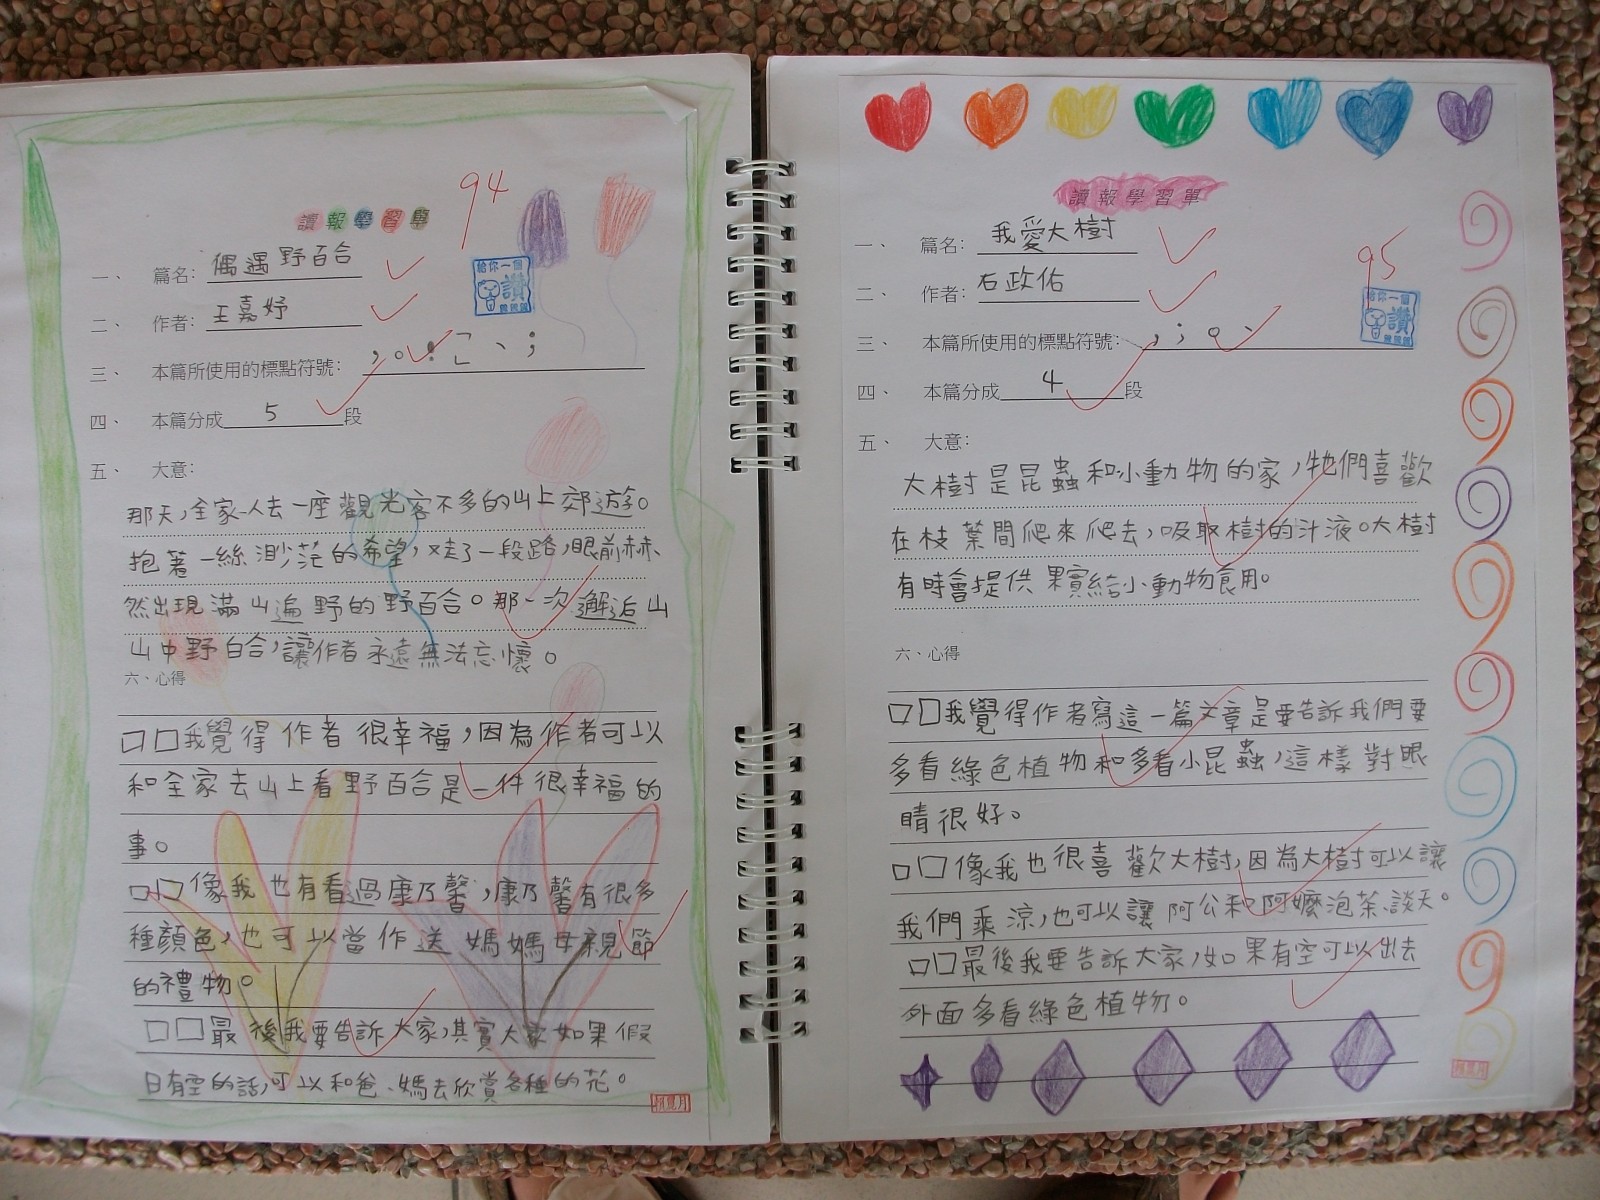 讀報學習單
94
一、 篇名：偶遇野百合
給你一個
讚
二、 作者：王嘉妤
三、 本篇所使用的標點符號：，。！「、；
四、 本篇分成 5 段
五、 大意：
那天，全家人去一座觀光客不多的山上郊遊。
抱著一絲渺茫的希望，又走了一段路，眼前赫
然出現滿山遍野的野百合。那一次邂逅山
山中野百合，讓作者永遠無法忘懷。
六、心得
□□我覺得作者很幸福，因為作者可以
和全家去山上看野百合是一件很幸福的
事。
□□像我也有看過康乃馨，康乃馨有很多
種顏色，也可以當作送媽媽母親節
的禮物。
□□最後我要告訴大家，其實大家如果假
日有空的話，可以和爸、媽去欣賞各種的花。
讀報學習單
一、 篇名：我愛大樹
95
二、 作者：石政佑
給你一個
讚
三、 本篇所使用的標點符號：，；。、
四、 本篇分成 4 段
五、 大意：
大樹是昆蟲和小動物的家，牠們喜歡
在枝葉間爬來爬去，吸取樹的汁液。大樹
有時會提供果實給小動物食用。
六、心得
□□我覺得作者寫這一篇文章是要告訴我們要
多看綠色植物和多看小昆蟲，這樣對眼
睛很好。
□□像我也很喜歡大樹，因為大樹可以讓
我們乘涼，也可以讓阿公和阿嬤泡茶、談天。
□□最後我要告訴大家，如果有空可以出去
外面多看綠色植物。